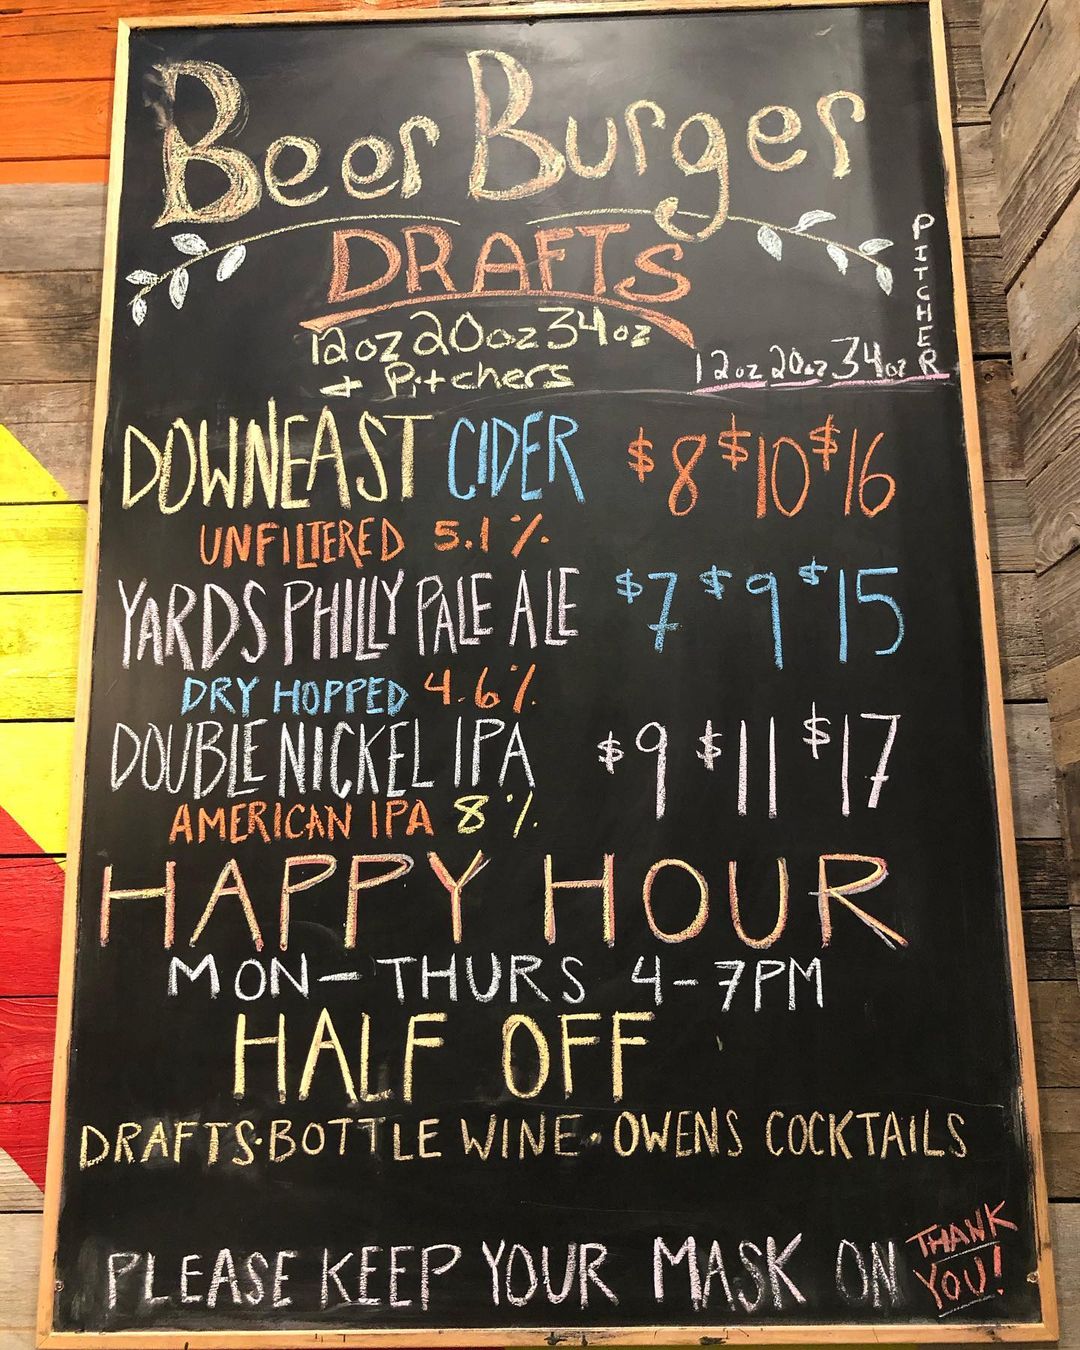 Beer Burger
DRAFTS
12oz 20oz 34oz
+ Pitchers
12oz 20oz 34oz PITCHER
DOWNEAST CIDER $8 $10 $16
UNFILTERED 5.1%
YARDS PHILLY PALE ALE $7 $9 $15
DRY HOPPED 4.6%
DOUBLE NICKEL IPA $9 $11 $17
AMERICAN IPA 8%
HAPPY HOUR
MON-THURS 4-7PM
HALF OFF
DRAFTS·BOTTLE WINE·OWENS COCKTAILS
PLEASE KEEP YOUR MASK ON THANK YOU!